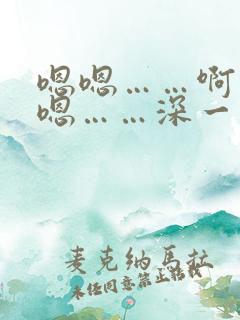 嗯嗯……啊
嗯……深一
麦克纳马拉
未经同意禁止转载